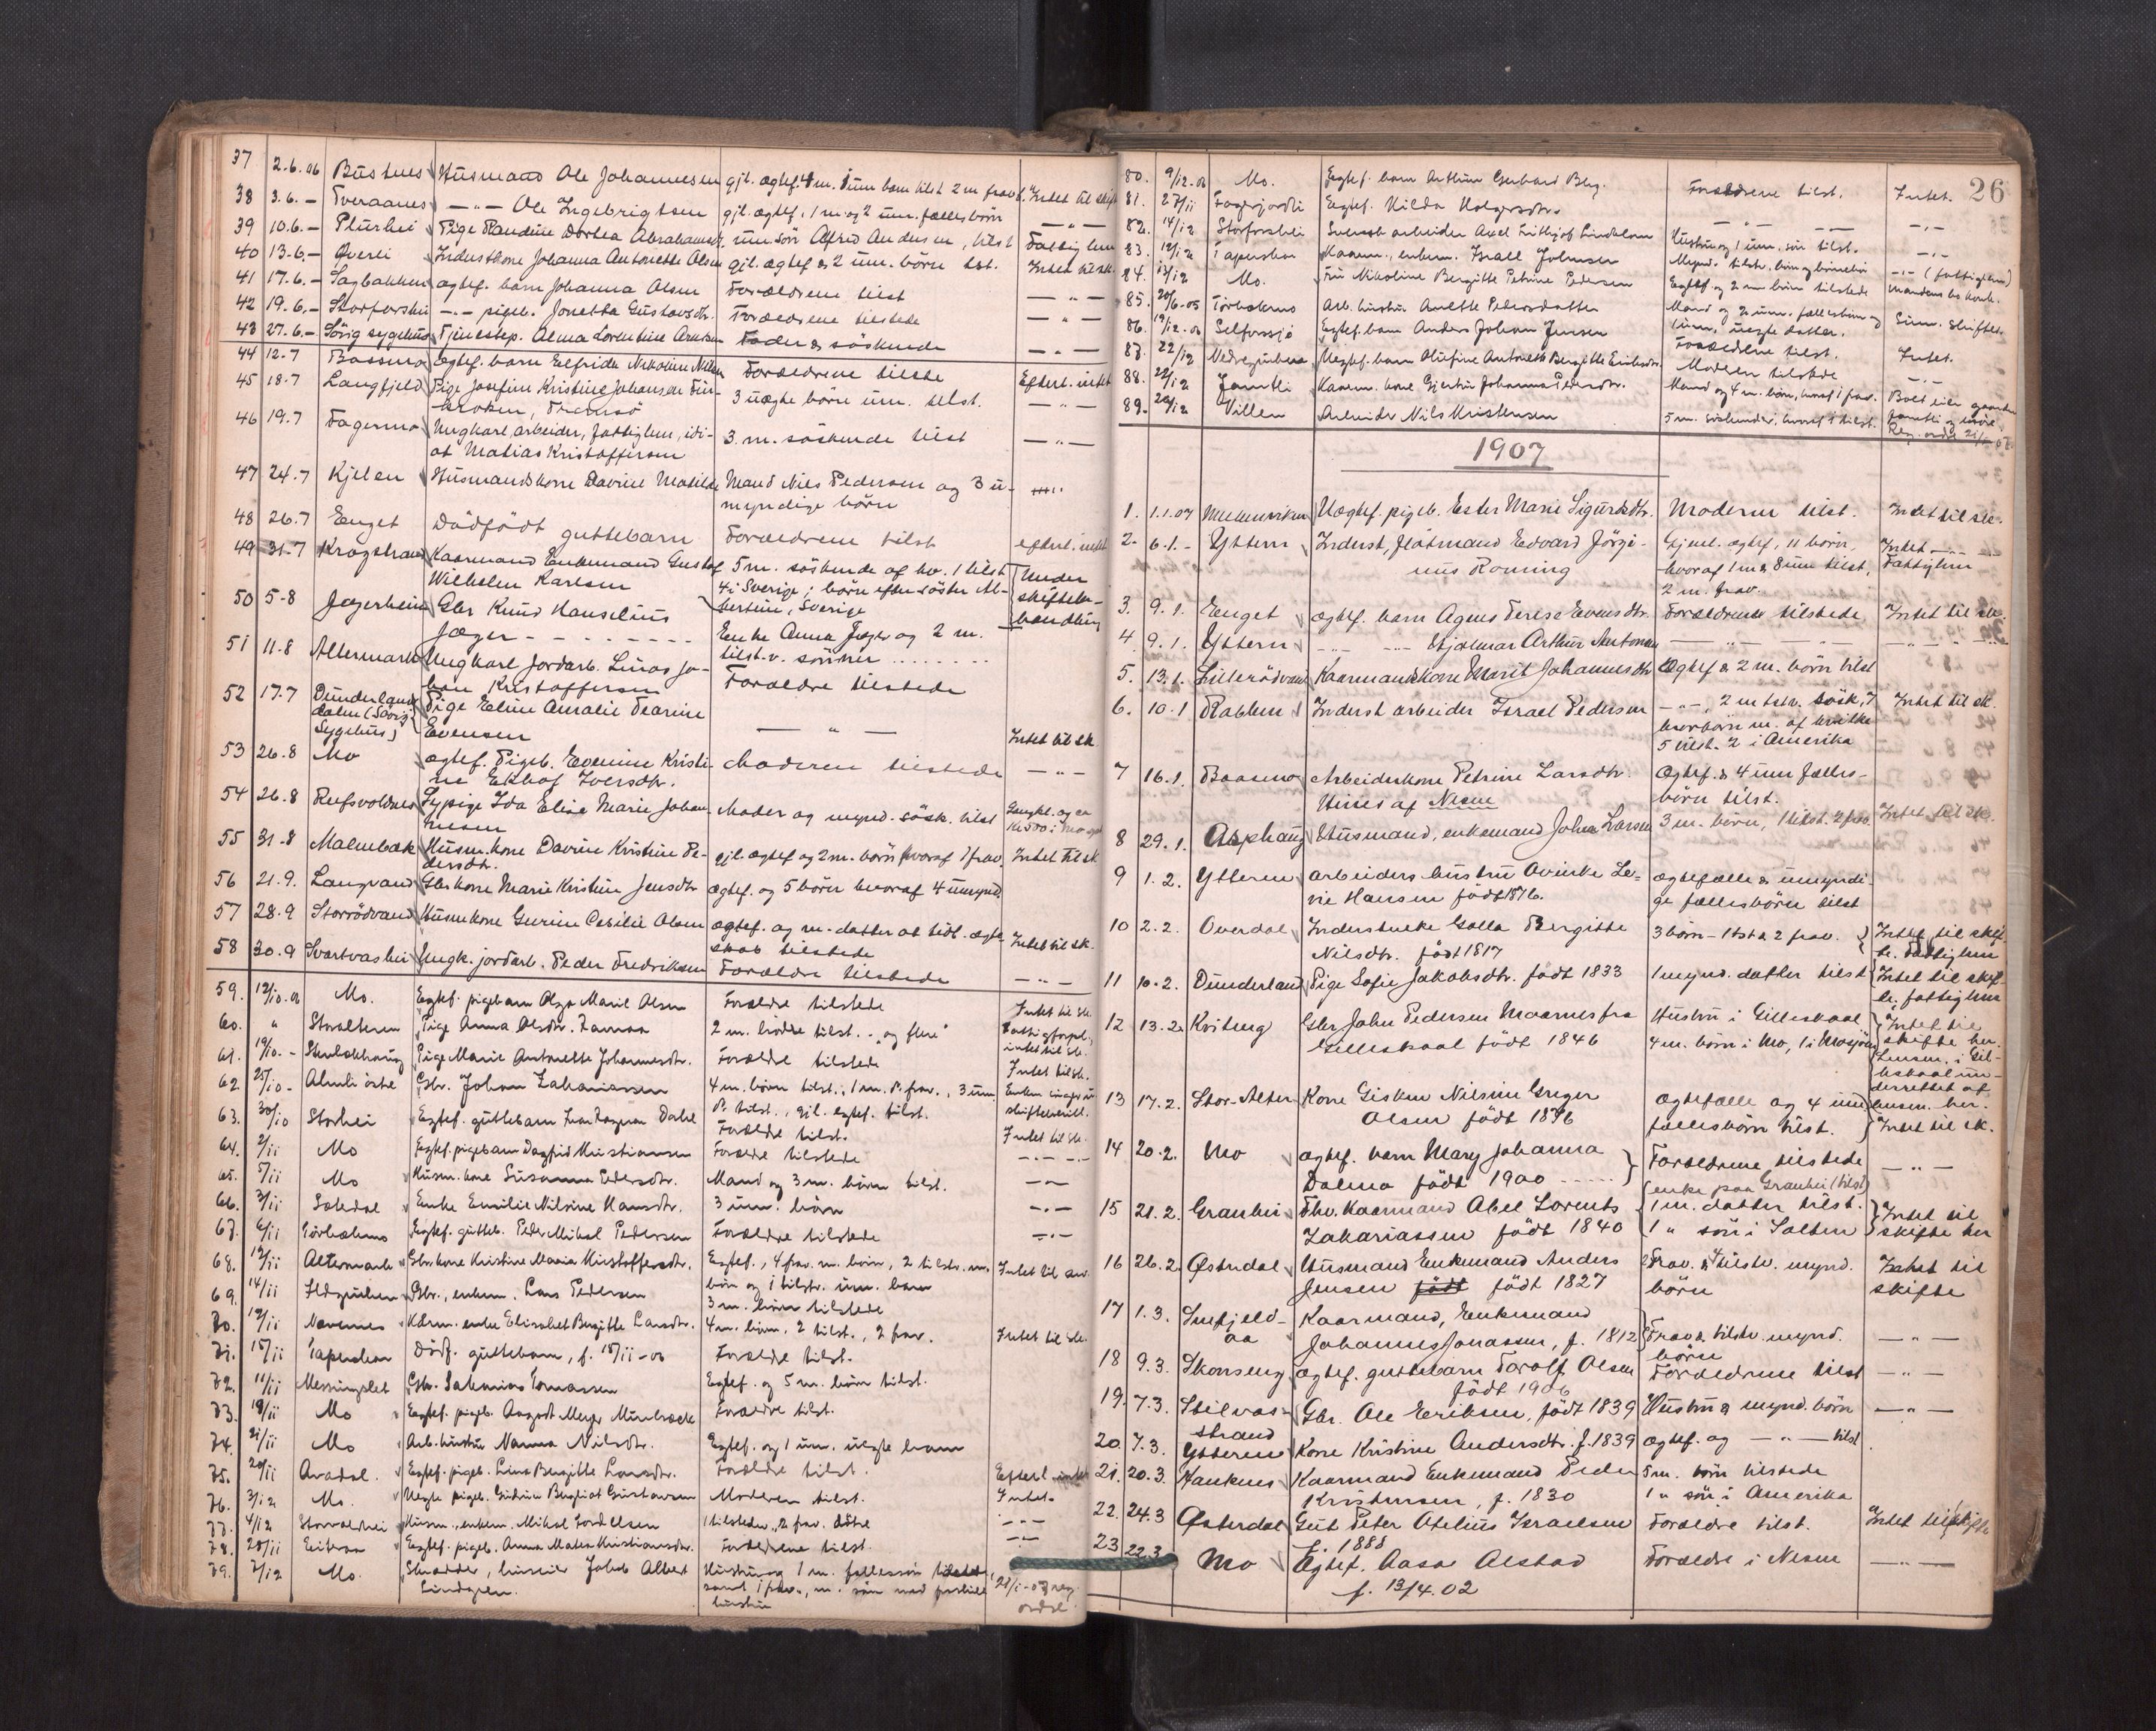 37 2.6.06 Büstnes Hüsmand Ole Johannesen gjl. ægtef. 4 m. 1 üm barn tilst 2 m frav. Intet til skift
38 3.6.- Tveraanes -"- Ole Ingebrigtsen gjl. ægtef, 1 m. og 2 üm. fællesbörn -"-
39 10.6.- Plürhei Pige Randine Dorthea Abrahamsd. üm sön Alfred Andersen, tilst Fattiglem
40 13.6.- Överli Inderstkone Johanna Antonette Olsen gjl. ægtef & 2 üm. börn tilst. Intet til sk.
41 17.6.- Sagbakken ægtef. barn Johanna Olsen Forældrene tilst -"-
42 19.6.- Storforshei -"- pigeb. Jonetta Güstavsdtr. Forældrene tilstede -"-
43 27.6.- Sörig sygehüs Tjenestep. Alma Lorentine Arntsen Fader & söskende -"-
44 12.7 Baasmo Ægtef. barn Elfride Nikoline Nilsen Forældrene tilste Efterl. intet
45 18.7 Langfjeld Pige Josefine Kristine Johansen Fin-
kroken, Tromsö 3 üægte börn üm. tilst. -"-
46 19.7 Fagermo Ungkarl, arbeider, fattiglem, idi-
ot Matias Kristoffersen 3. m. söskende tilst -"-
47 24.7 Kjelen Hüsmandskone Davine Matilde Mand Nils Pedersen og 3 ü-
myndige börn
48 26.7 Enget Dödfödt guttebarn Forældrene tilst efterl. intet
49 31.7 Krogstrand Kaarmand Enkemand Gustaf 5 m. söskende af hv. 1 tilst Under
Wilhelm Karlsen 4 i Sverige; börn efter söster Al- skiftebe-
bertine, Sverige handling
50 5-8 Jægerheim Gbr Knüd Hanselius
Jæger - - - - Enke Anna Jæger og 2 m.
tilst.v. sönner
51 11.8 Altermark Ungkarl Jordarb. Linas Jo-
han Kristoffersen Forældre tilstede
52 17.7 Dunderlands
dalen (Sörig Sygehüs) Pige Eline Amalie Tearine
Evensen -"- Intet til sk.
53 26.8 Mo ægtef. Pigeb. Evenine Kristi-
ne Ekhof Iversdtr. Moderen tilstede -"-
54 26.8 Refsvoldnes Sypige Ida Elise Marie Johan-
nesen Moder og mynd. søsk. tilst
55 31.8 Malmbæk Hüsm. kone Davine Kristine Pe-
dersdtr. gjl. ægtef og 2 m. börn hvoraf 1 frav. Intet til sk
56 21.9. Langvand Gbr kone Marie Kristine Jensdtr ægtef. og 5 börn hvoraf 4 ümynd.
57 28.9 Storrödvand Hüsm kone Gurine Cecilie Olsen ægtef. og m. datter af tidl. ægte
skab tilstede Intet til sk.
58 30.9 Svartvashei Ungk. jordarb. Peder Fredriksen Forældre tilstede -"-
59. 12/10.06 Mo. Egtef. pigebarn Olga Marie Olsen Forældre tilstede Intet til sk.
60. " Storalteren Pige Anna Olsdtr. 2 m. brödre tilst. "og flere" Fattigforpl. intet til sk.
61. 19/10.- Stenbækhaug Pige Marie Antonette Johannesdtr. Forældre tilstede Intet til sk.
62. 25/10- Almli östre Gbr. Johan Zakariassen 4 m. börn tilst., 1 m. frav., 3 üm
tilst., gjl. egtef. tilst. Enken i uskiftet
63. 30/10 Storhei Egtef. guttebarn Dahl Forældre tilst. Intet til sk.
64. 2/11 Mo Egtef. pigebarn Dagfrid Kristiansen Forældre tilstede -"-
65. 5/11 Mo Husm. kone Susanna Pedersdtr. Mand og 3 m. börn tilst. -"-
66. 3/11 Enke Emilie Nilsine Hansdtr. 3 üm. börn -"-
67. 6/11 Egtef. gutteb. Peder Mikal Pedersen Forældre tilstede -"-
68. 12/11 Altermark Gbr. kone Kristine Maria Kristoffersdtr. Egtef., 4 frav. m. börn, 2 tilst. m.
börn og 1 tilst. üm. barn
69. 14/11 Gbr., enkem. Lars Pedersen 3 m. börn tilstede
70. 12/11 Nævernes Kårm. enke Elisabet Bergitte Larsdtr. 4 m. börn, 2 tilst., 2 frav. Intet til sk.
71. 15/11 Dödf. guttebarn, f. 15/11-06 Forældre tilst.
72. 11/11 Messingslet Gbr. Tomassen Egtef. og 5 m. börn tilst.
73. 18/11 Mo Egtef. pigeb. Forældre tilst.
74. 21/11 Mo Arb. hustru Nanna Nilsdtr. Egtef. og 1 üm. üegte barn
75. 20/11 Avadal. Egtef. pigeb. Lina Bergitte Larsdtr. Forældre tilst. Efterl. intet
76. 3/12 Mo. Uegte pigeb. Moderen tilst. Intet.
77. 4/12 Husm., enkem. Mikal 1 tilstede, 2 frav. dötre -"-
78. 28/11 Egtef. pigeb. Anna Kristiansdtr. Forældrene tilst. -"-
79. 7/12 Mo. Skrædder, Jakob Albert
Lindgren. Hustru og 1 m. fællessön tilstede
samt 1 frav., m. sön med forhenv.
hustru
80. 9/12.06 Mo. Egtef. barn Arthur Gerhard Berg. Forældrene tilst. Intet. 26
81. 27/11 Fagerjordli Egtef. Hilda Holgersdtr. -"- -"-
82. 14/12 Storforshei Svensk arbeider Axel Frithjof Lindblom Hustru og 1 üm. sön tilst. -"-
83. 12/12 Kaarm., enkem. Israel Johnsen Mynd. tilstv. börn og börnebörn -"- (fattiglem)
84. 13/12 Mo. Fru Nikoline Bergitte Petrine Pedersen Egtef. og 2 m börn tilstede
85. 20/6-05 Arb. hustru Anette Pedersdatter Mand og 2 üm. fællesbörn og
1 üm. üegte datter.
86. 19/12.06 Selforssjö Egtef. barn Anders Johan Jensen Forældrene tilst. Intet.
87. 22/12 Uegtef. barn Olufine Antonette Bergitte Eriksdtr. Moderen tilstede -"-
88. 22/12 Jamtli Kaarm. kone Gjertru Johanna Pedersdtr. Mand og 4 m. börn, hvoraf 1 frav.
89. 28/12 Villen Arbeider Nils Kristensen 5 m. söskende, hvoraf 1 tilst.
1907
1. 1.1.07 Uægtef. pigeb. Ester Marie Sigurdsdtr. Moderen tilst. Intet til sk.
2. 6.1.- Yttern Inderst, flötmand Edvard Jörgi-
nus Roming Gjenl. ægtef, 11 börn,
hvoraf 1 m & 8 üm tilst,
2 m. frav. Intet -"-
Fattiglem
3. 9.1. Enget ægtef. barn Agnes Terese Evensdtr. Forældrene tilstede Intet til sk.
4. 9.1. Yttern -"- -"- Hjalmar Arthur Antonsen -"- -"-
5. 13.1. Lillerödvand Kaarmandskone Marit Johannesdtr Ægtef & 2 m. börn tilst
6. 10.1 Rabben Inderst arbeider Israel Pedersen -"-, 2 m tstv. søsk, 7
m. af hvilke
5 tilst. 2 i Amerika Intet til sk.
7 16.1. Baasmo Arbeiderkone Petrine Larsdtr.
Hines af Nesne Ægtef. & 4 üm fælles-
börn tilst.
8 29.1. Asphaug Hüsmand, enkemand Johan Larsen 3 m. börn, 1 tilst. 2 frav. Intet til sk.
9 1.2. Ytteren arbeiders hüstrü Ovinke Le-
vie Hansen födt 1876. ægtefælle & ümyndi-
ge fællesbörn tilst
10 2.2. Overdal Inderstenke Golla Bergitte
Nilsdtr. födt 1817 3 börn - 1 tst & 2 frav. Intet til skif-
te. Fattiglem
11 10.2. Dunderland Pige Sofie Jakobsdtr. födt 1833 1 mynd. datter tilst Intet til skif-
te, fattiglem
12 13.2. Kviteng Gbr John Pedersen Maarnes fra
Gilleskaal födt 1846 Hüstrü i Gilleskaal
4 m. börn i Mo, 1 i Mosjöen Intet til
skifte her.
Lensm. i Gil-
leskaal un-
derrettet af
lensm. her.
13 17.2. Stor-Alter Kone Gisken Nilsine Greger
Olsen födt 1876 ægtefælle og 4 üm
fællesbörn tilst. Intet til sk.
14 20.2. Mo ægtef. barn Mary Johanna
Dalmo födt 1900 Forældrene tilstede -"-
15 21.2. Granhei Fhv. Kaarmand Abel Lorents
Zakariassen födt 1840 enke paa Granhei (tilst)
1 m. datter tilst.
1 " sön i Salten Intet til
skifte her
16 26.2. Østerdal Hüsmand Enkemand Anders
Jensen födt födt 1827 Frav. & 4 tilstv. mynd.
börn Intet til
skifte
17 1.3. Snefjeld-
aa Kaarmand, Enkemand
Johannes Jonassen, f. 1812 Frav & tilstv. mynd.
börn -"-
18 9.3. Skonseng ægtef. guttebarn Torolf Olsen
födt 1906 Forældrene tilst -"-
19. 7.3. Stilvas-
strand Gbr. Ole Eriksen, födt 1839 Hüstrü & mynd. börn -"-
20. 7.3. Ytteren Kone Kristine Andersdtr. f. 1839 ægtef. og -"- tilst
21. 20.3. Hauknes Kaarmand Enkemand Peder
Kristensen, f. 1830 5 m. börn tilstede
1 " sön i Amerika
22. 24.3 Østerdal Güt Peter Otelius Israelsen
f. 1888 Forældre tilst. Intet til skifte
23 22.3. Mo Egtef. Aasa Alstad
f. 13/4.02 Forældre i Nesne -"-